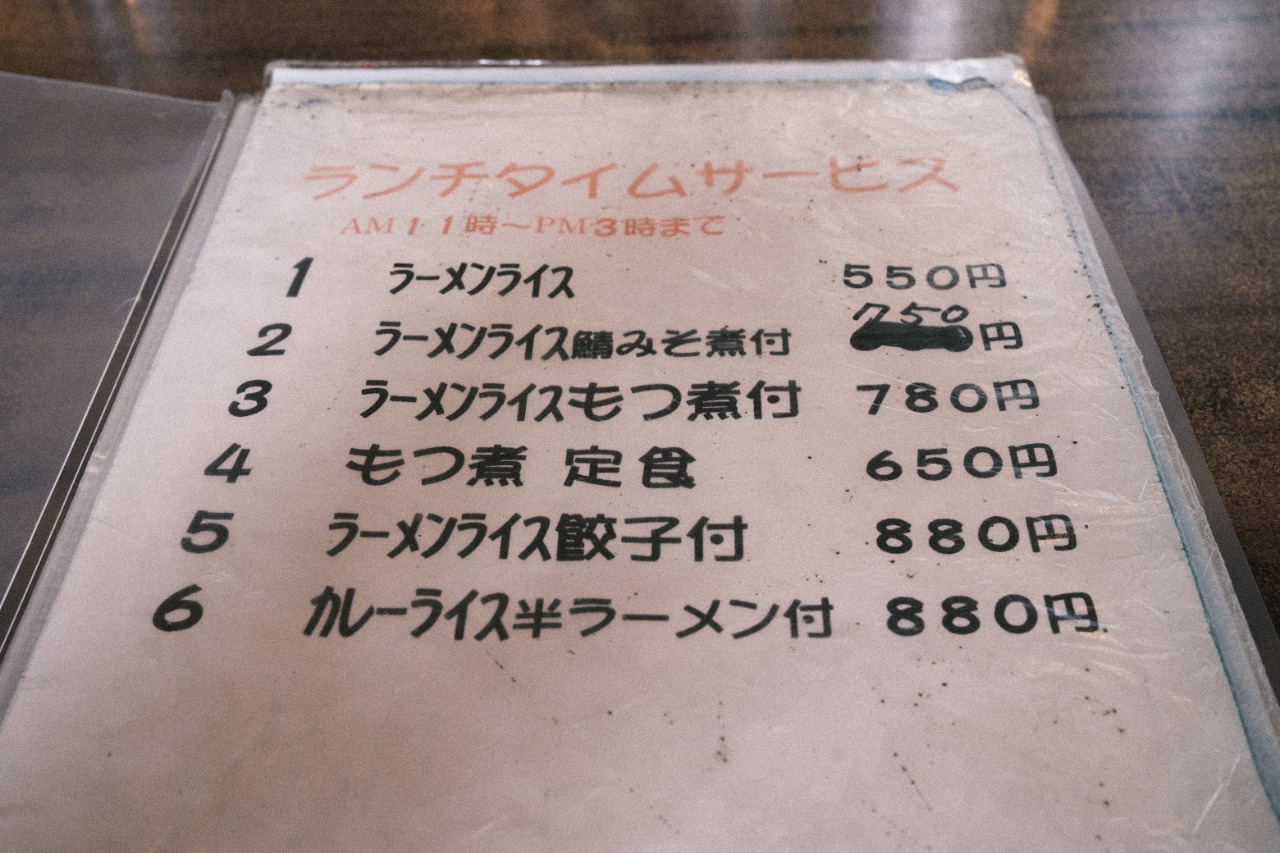 ランチタイムサービス
AM11時～PM3時まで
1 ラーメンライス 550円
2 ラーメンライス鯖みそ煮付 750円
3 ラーメンライスもつ煮付 780円
4 もつ煮 定食 650円
5 ラーメンライス餃子付 880円
6 カレーライス半ラーメン付 880円